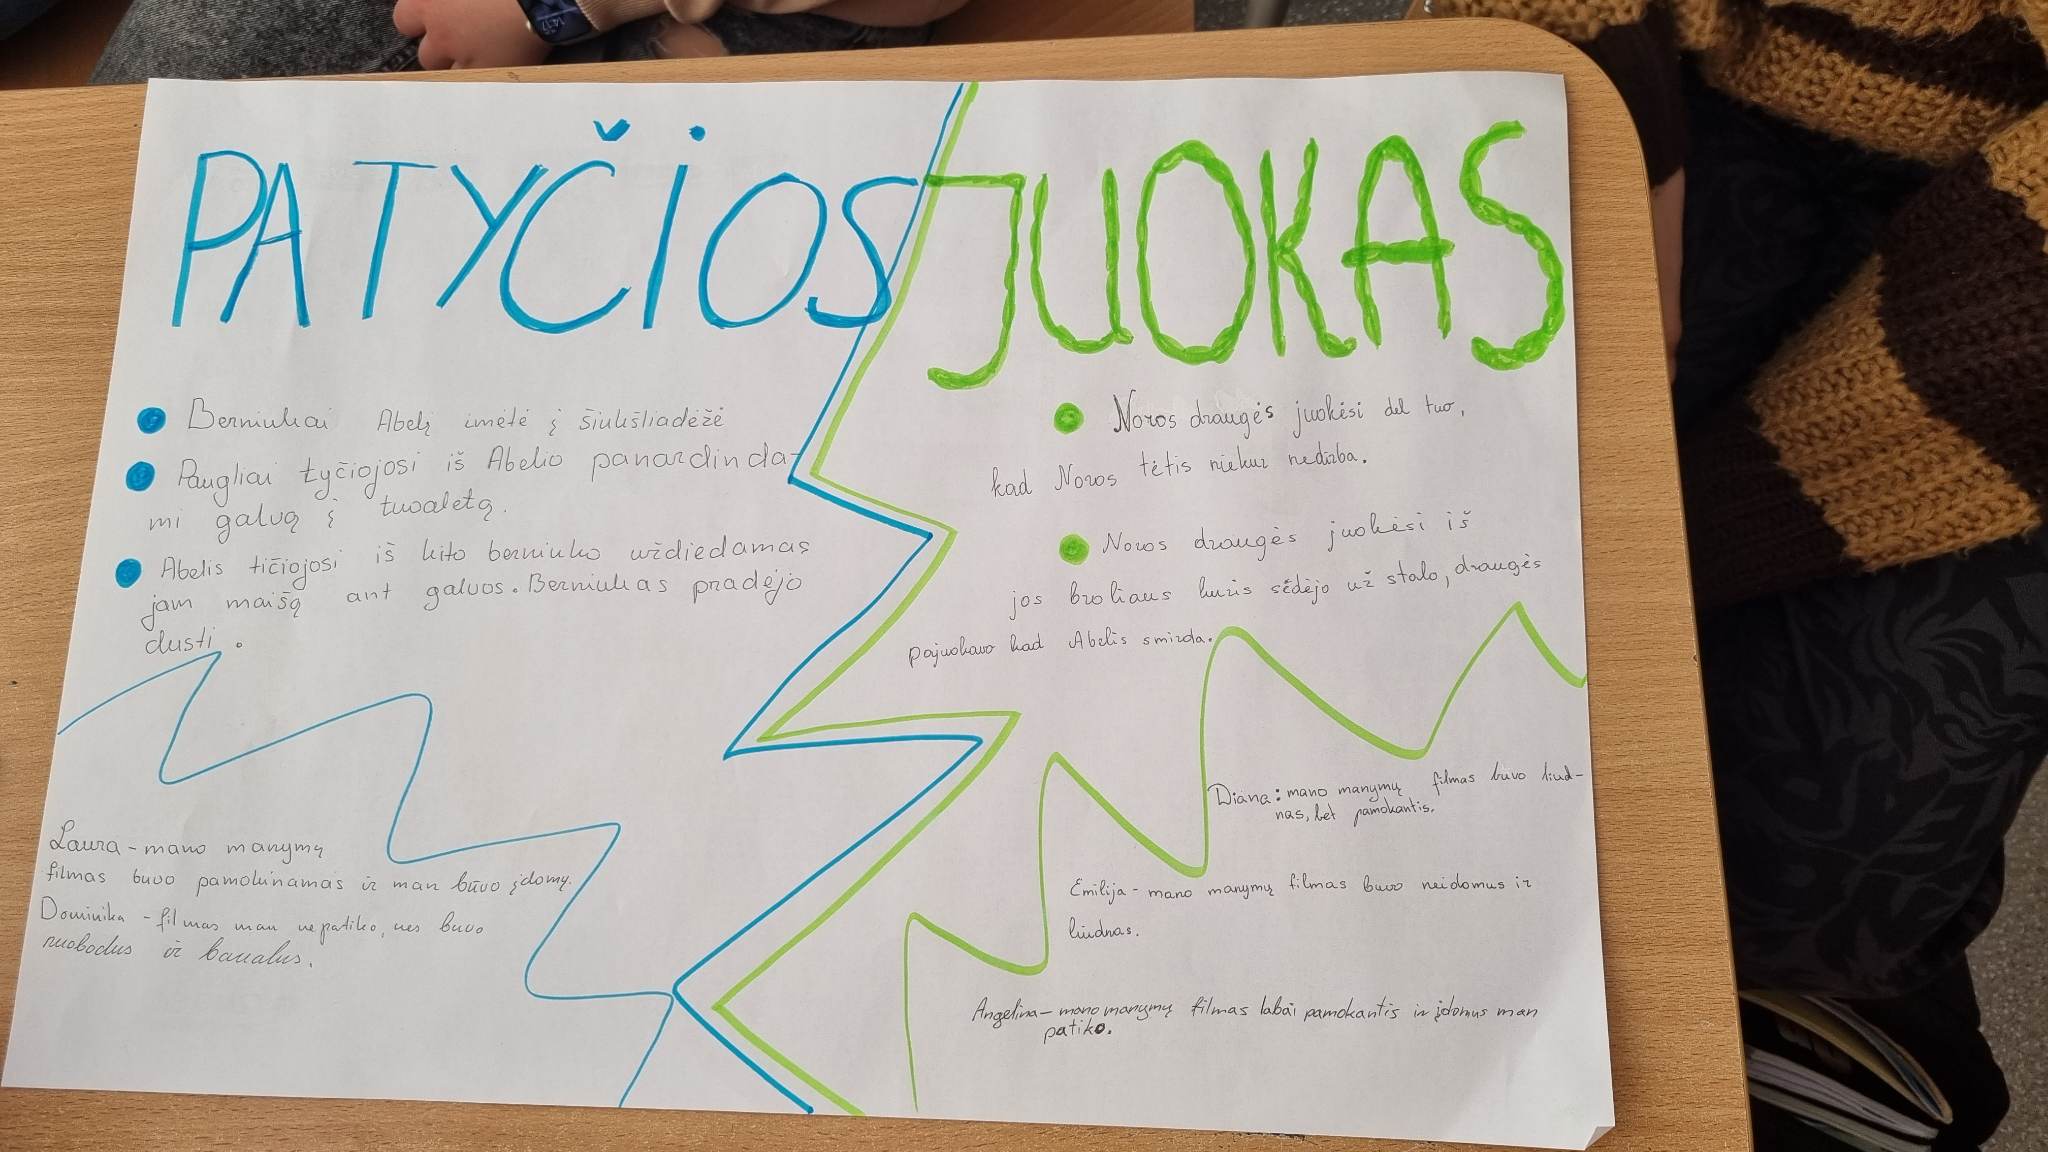 PATYČIOS
Berniukai Abelį imėtė į šiukšliadėžė
Paugliai tyčiojosi iš Abelio panardinda-
mi galvą į tuoaletą.
Abelis tičiojosi iš kito berniuko uždiedamas
jam maišą ant galvos. Berniukas pradėjo
dusti.
Laura - mano manymų
filmas buvo pamokinamas ir man būvo įdomų.
Dominika - filmas man nepatiko, nes buvo
nuobodus ir banalus.
JUOKAS
Noros draugės juokėsi del tuo,
kad Noros tėtis niekur nedirba.
Noros draugės juokėsi iš
jos broliaus kuris sėdėjo už stalo, draugės
pajuokavo kad Abelis smirda.
Diana: mano manymų filmas buvo liud-
nas, bet pamokantis.
Emilija - mano manymų filmas buvo neidomus ir
liudnas.
Angelina - mano manymų filmas labai pamokantis ir įdomus man
patiko.
14:17